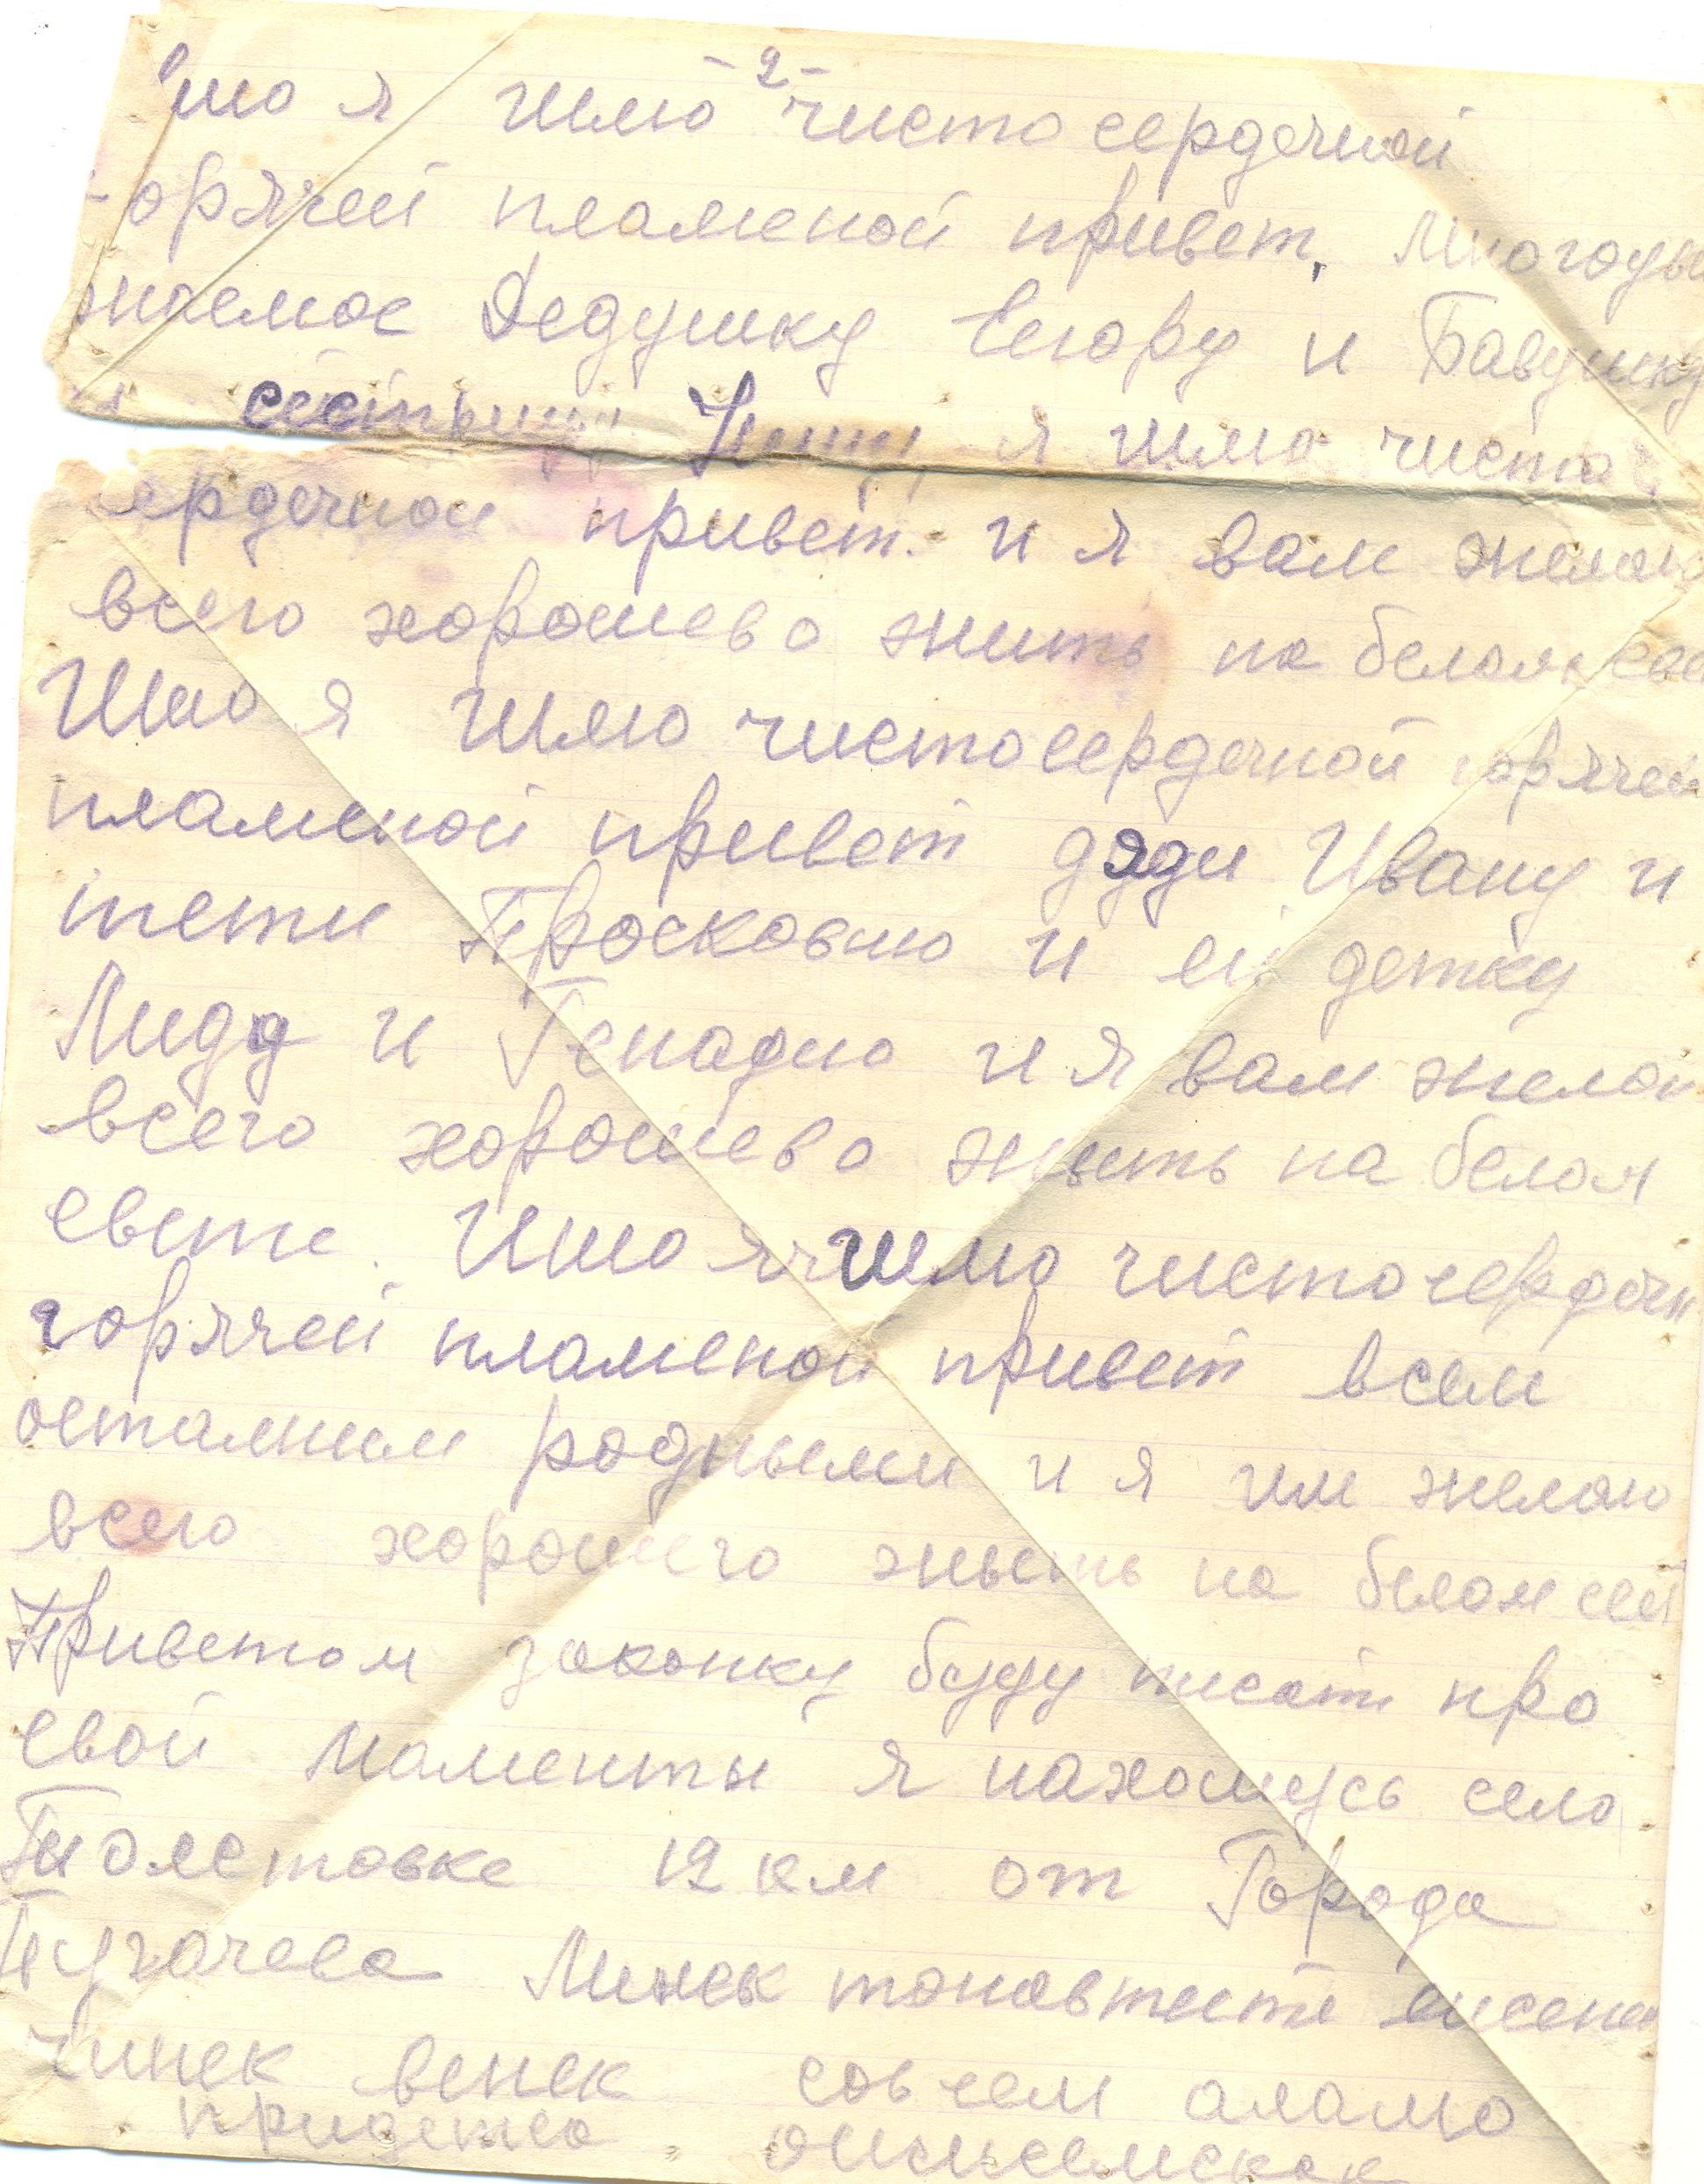 -2-
шо я шлю чисто сердечной
орячей пламеной привет. Многоува
жаемое Дедушку Егору и Бавушку
сестрицу я шлю чиста
ердечной привет. и я вам желаю
всего хорошево жить на белом све
Ишо я шлю чистосердечной горячей
пламеной привет дяди Ивану и
тети Просковю и ей детку
Лидд и Генадю и я вам желаю
всего хорошево жыть на белом
свете. Ишо я шлю чистосердечн
горячей пламеной привет всем
осталным родными и я им желаю
всего хорошего жыть на белом свет
Приветом законку буду писать про
свой маменты я нахожусь село
Толстовке 12 км от Города
Пугачева
венек совсем
придетса